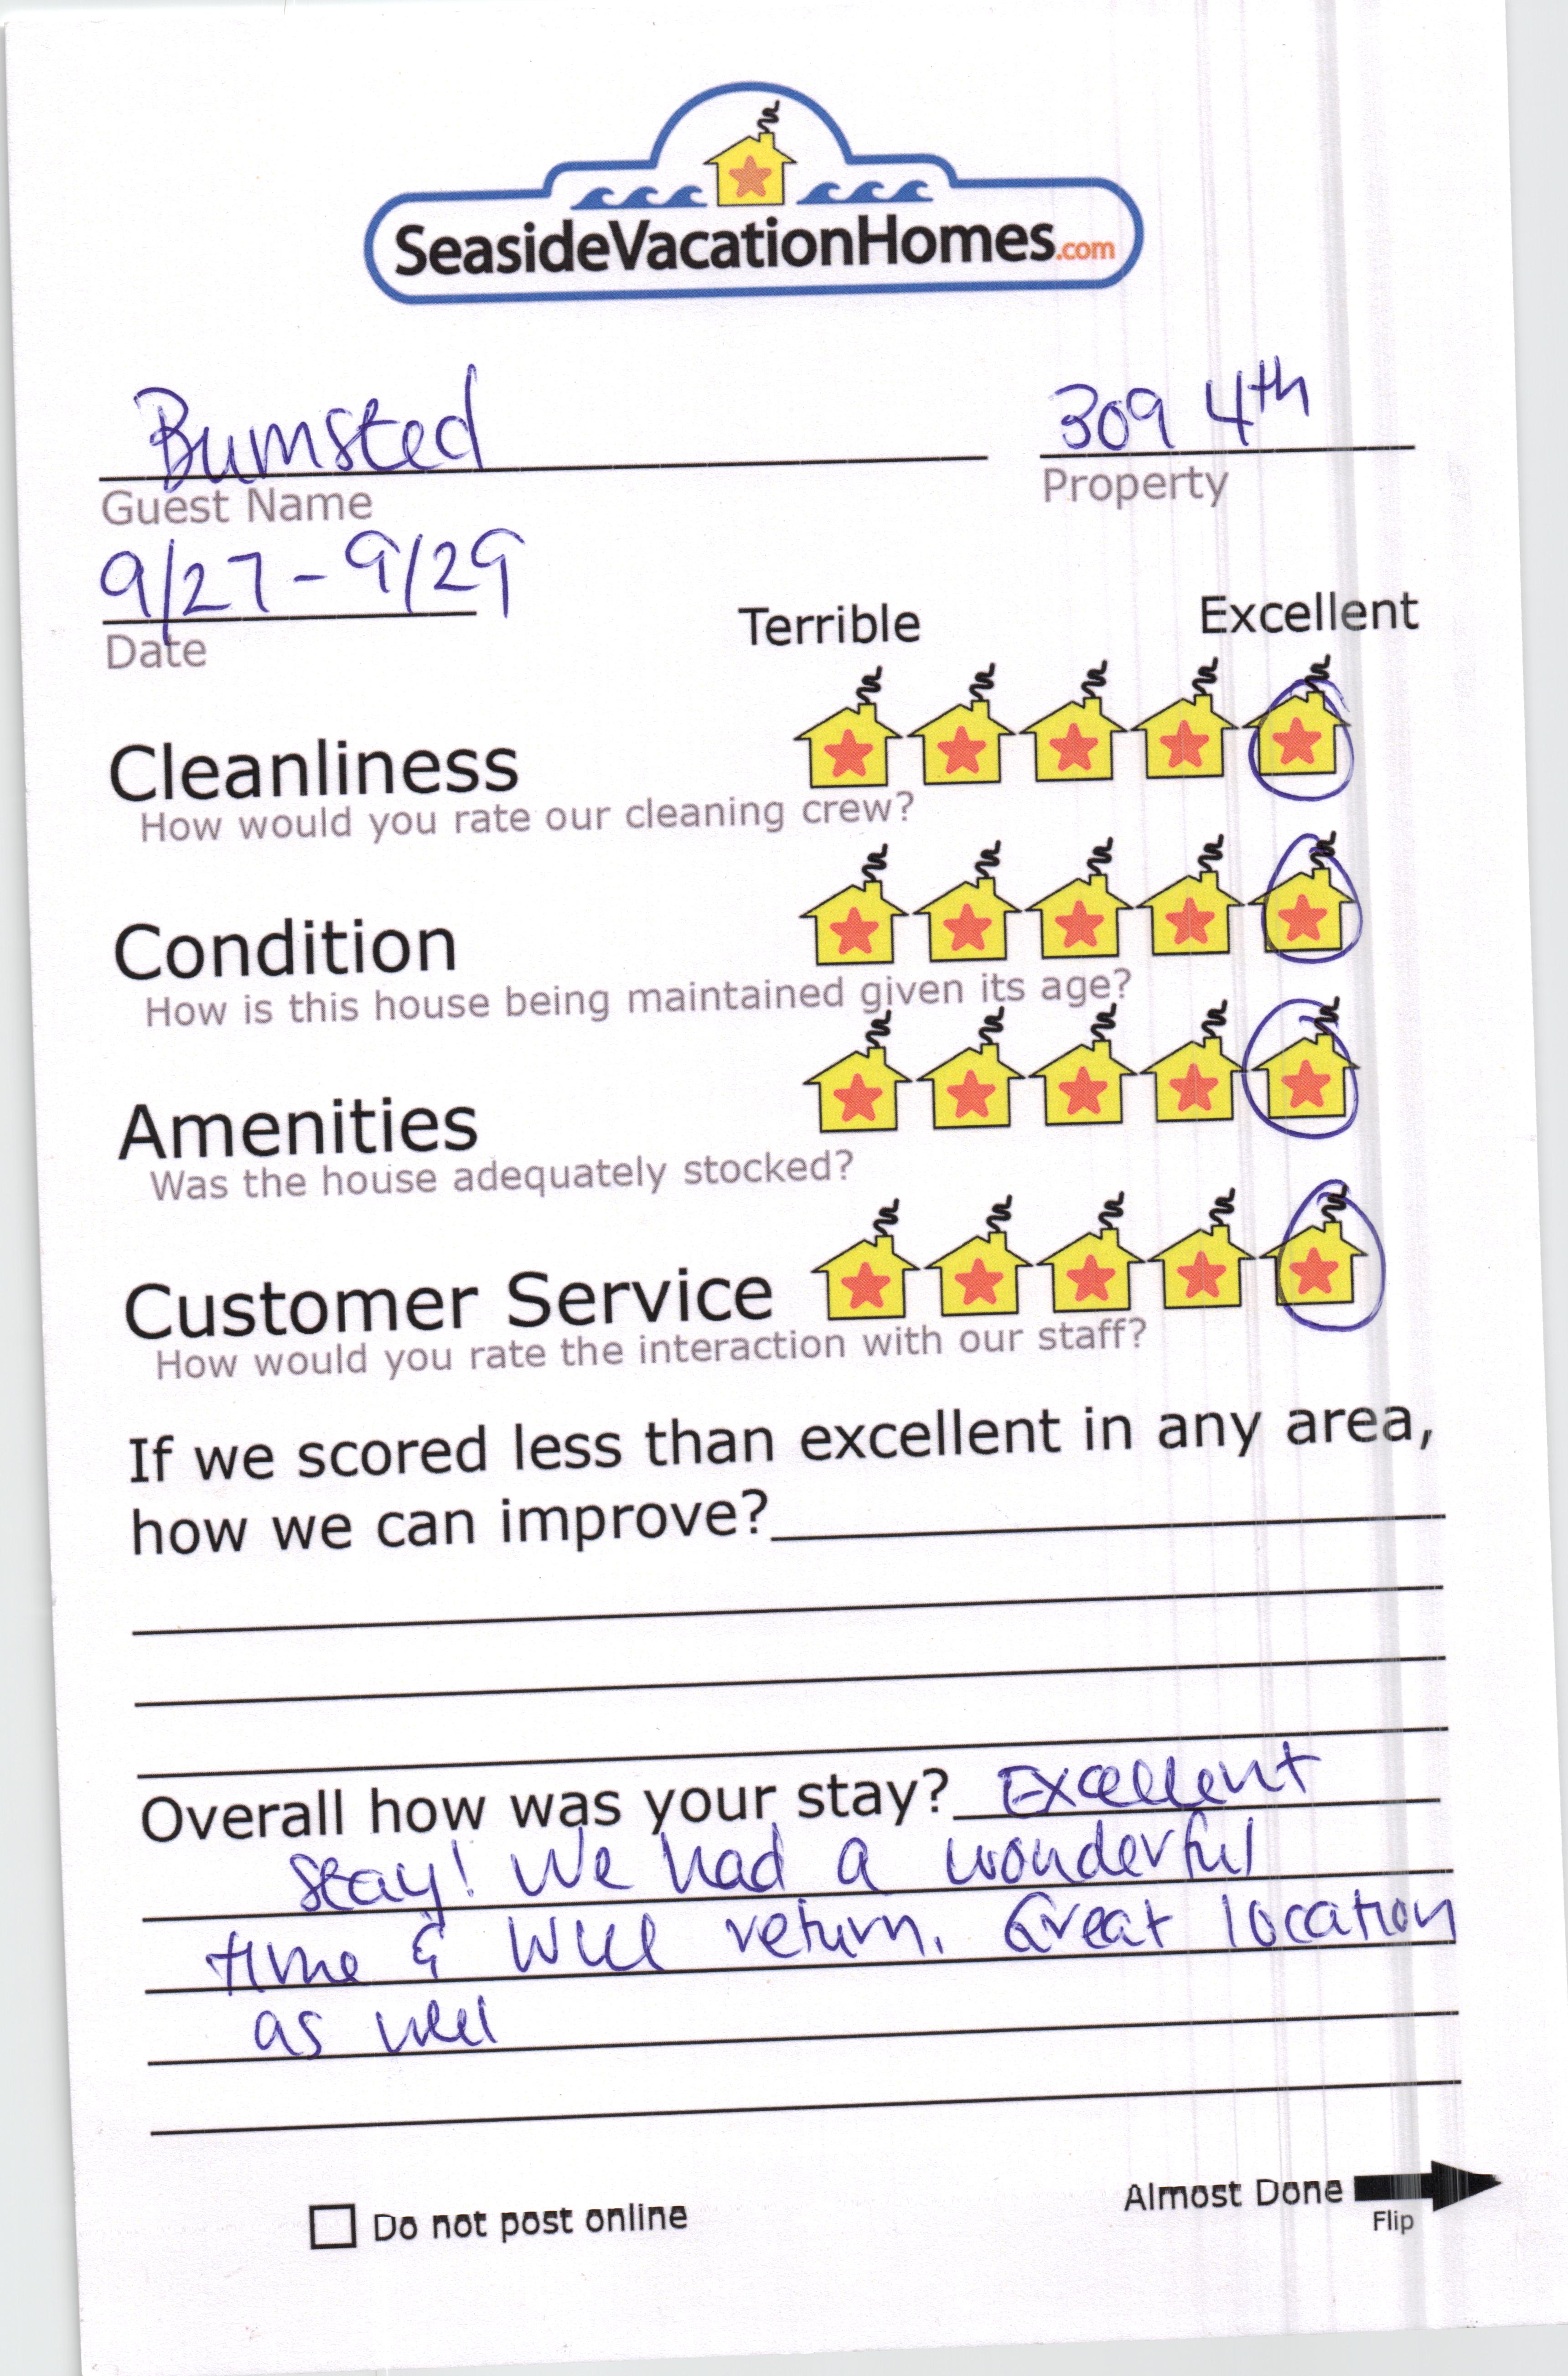 SeasideVacationHomes.com
Bumsted 309 4th
Guest Name Property
9/27 - 9/29
Date
Terrible Excellent
Cleanliness
How would you rate our cleaning crew?
Condition
How is this house being maintained given its age?
Amenities
Was the house adequately stocked?
Customer Service
How would you rate the interaction with our staff?
If we scored less than excellent in any area,
how we can improve?
Overall how was your stay? Excellent
stay! We had a wonderful
time & will return. Great location
as well
Do not post online
Almost Done
Flip